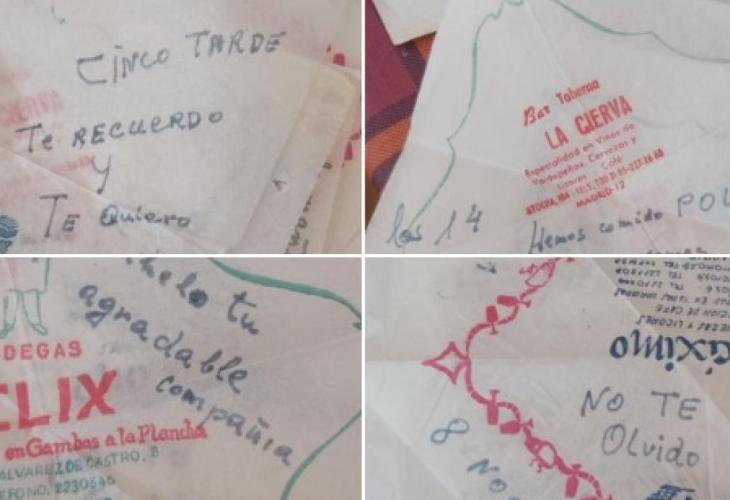 CINCO TARDE
Te RECUERDO
Y
TE Quiero
Bar Taberna
LA CIERVA
Especialidad en Vinos de
Valdepeñas, Cervezas y
Licores - Café
MADRID-12
los 14
Hemos comido POL
helo tu
agradable
compañia
DEGAS
ELIX
en Gambas a la Plancha
ALVAREZ DE CASTRO, 8
EFONO, 2230546
áximo
NO TE
Olvido
8 No